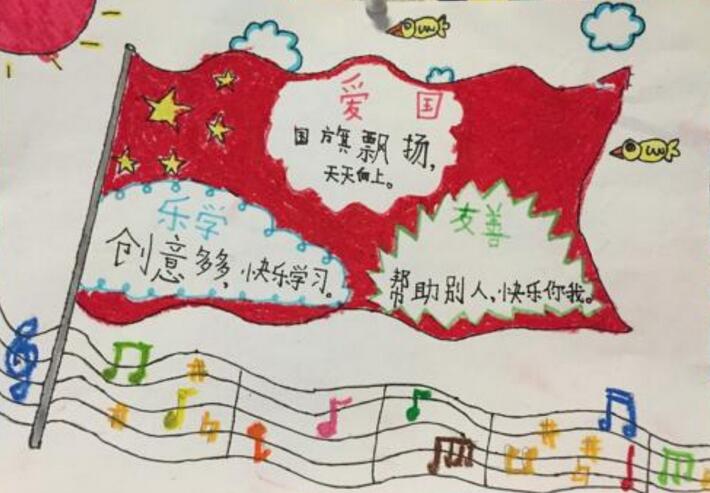 爱国
国旗飘扬,
天天向上。
乐学
创意多多,快乐学习。
友善
帮助别人,快乐你我。